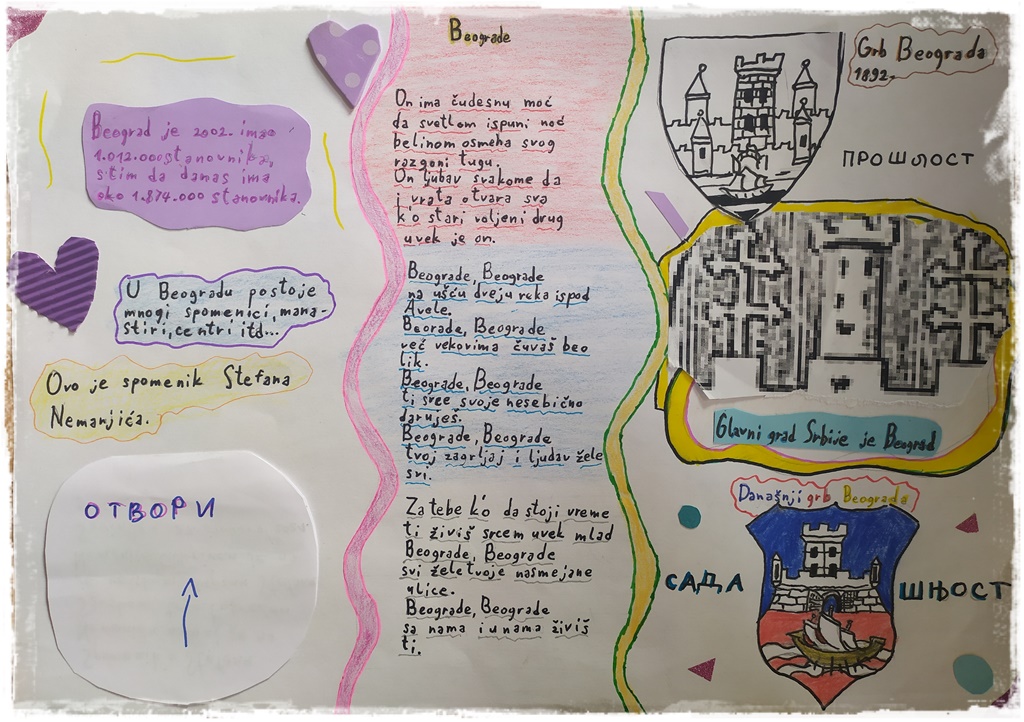 Beograd je 2002. imao
1.012.000 stanovnika,
s tim da danas ima
oko 1.874.000 stanovnika.
U Beogradu postoje
mnogi spomenici, mana-
stiri, centri itd...
Ovo je spomenik Stefana
Nemanjića.
ОТВОРИ
Beograde
On ima čudesnu moć
da svetlom ispuni noć
belinom osmeha svog
razgoni tugu.
On ljubav svakome da
i vrata otvara sva
k'o stari voljeni drug
uvek je on.
Beograde, Beograde
na ušću dveju reka ispod
Avele.
Beorade, Beograde
već vekovima čuvaš beo
lik.
Beograde, Beograde
ti srce svoje nesebično
daruješ.
Beograde, Beograde
tvoj zagrljaj i ljudav žele
svi.
Za tebe k'o da stoji vreme
ti živiš srcem uvek mlad
Beograde, Beograde
svi žele tvoje nasmejane
ulice.
Beograde, Beograde
sa nama i u nama živiš
ti.
Grb Beograda
1892.
ПРОШЛОСТ
Glavni grad Srbije je Beograd
Današnji grb Beograda
САДА ШЊОСТ